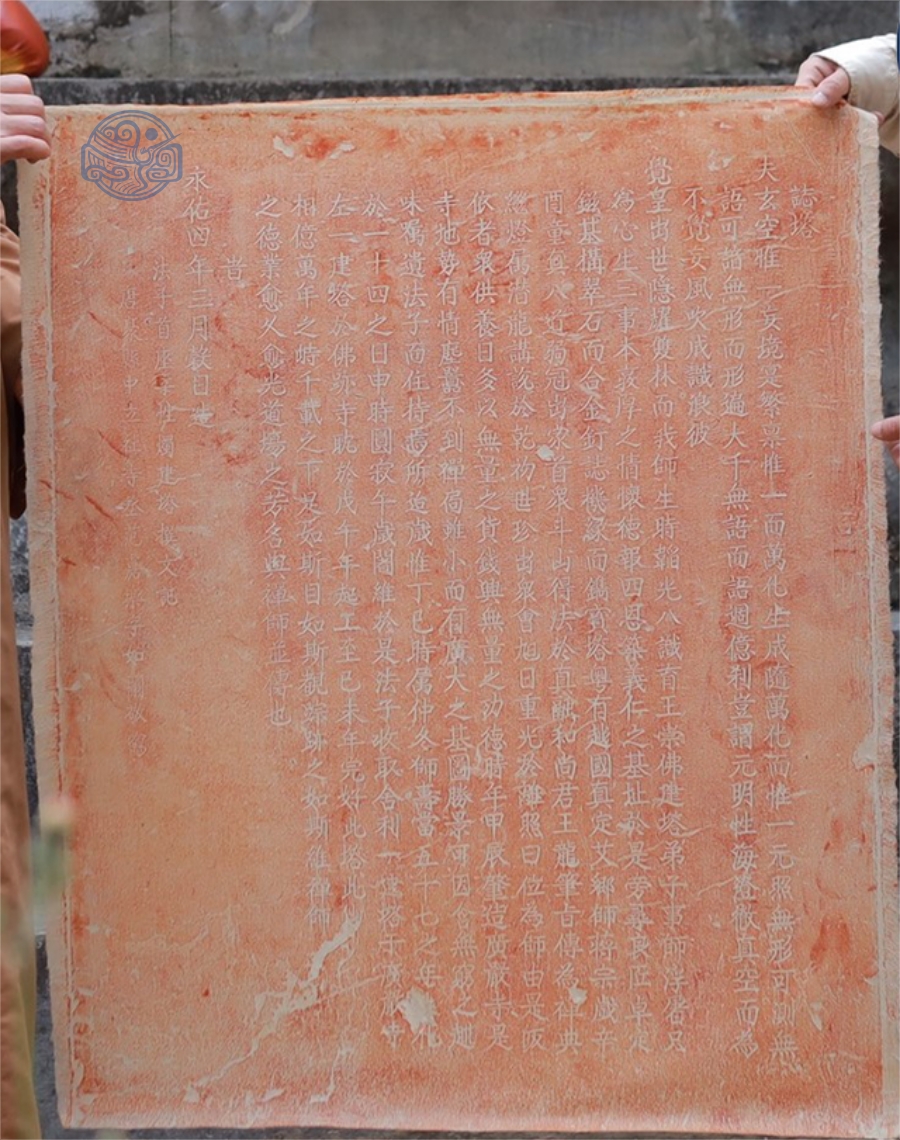 誌塔
夫玄空惟一妄境寔繁稟惟一而萬化生成隨萬化而惟一元照無形可訓無
語可誚無形而形遍大千無語而語週億利豈謂元明性海聲徹真空而為
不覺妄風吹成識浪彼
覺皇出世隱耀雙林而我師生時韜光八識育王崇佛建塔弟子事師浮者只
為心生三事本敦厚之情懷德報四恩築義仁之基址於是旁尋良匠卓定
基構翠石而合金釘誌機緣而鐫寶塔粵有越國真定艾鄉師蔣宗歲辛
酉童真入道弱冠出家首眾斗山得法於真融和尚君王龍筆旨傳為律典
繼燈萬潛龍講說於乾初世珍出眾會旭日重光於離照曰位為師由是皈
依者眾供養日多以無量之貨錢興無量之功德時年甲辰肇造廣嚴寺是
寺地勢有情塵囂不到禪局雖小而有廣大之基圖勝景可因令無窮之趣
味囑遺法子而住持焉所造歲惟丁巳時屬仲冬師壽當五十七之年化
於一十四之日申時圓寂午歲闍維於是法子收取舍利一壹塔于廣嚴寺
左一建塔於佛跡寺耽於戊午年起工至己未年完好此塔此
相億萬年之時千載之下是如斯目如斯觀踪跡之如斯維禪師
之德業愈久愈光道場之芳名與禪師並壽也
旹
永佑四年三月穀日造
法子首座等付囑建塔撰文記